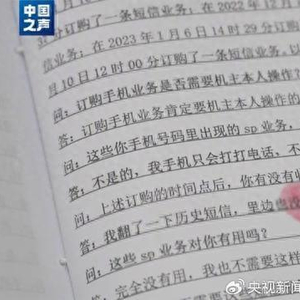 中国之声
分订购了一条短信业务；在 2022 年 12 月
信业务；在 2023 年 1 月 6 日 14 时 29 分订购
月 10 日 12 时 00 分订购了一条短信业务，以
问：订购手机业务是否需要机主本人操作的
答：订购手机业务肯定要机主本人操作的
问：这些你手机号码里出现的 sp 业务，
答：不是的，我手机只会打打电话，不
问：上述订购的时间点后，你有没有收
答：我翻了一下历史短信，里边也没
问：这些 sp 业务对你有用吗？
答：完全没有用，我也不需要这样
@央视新闻